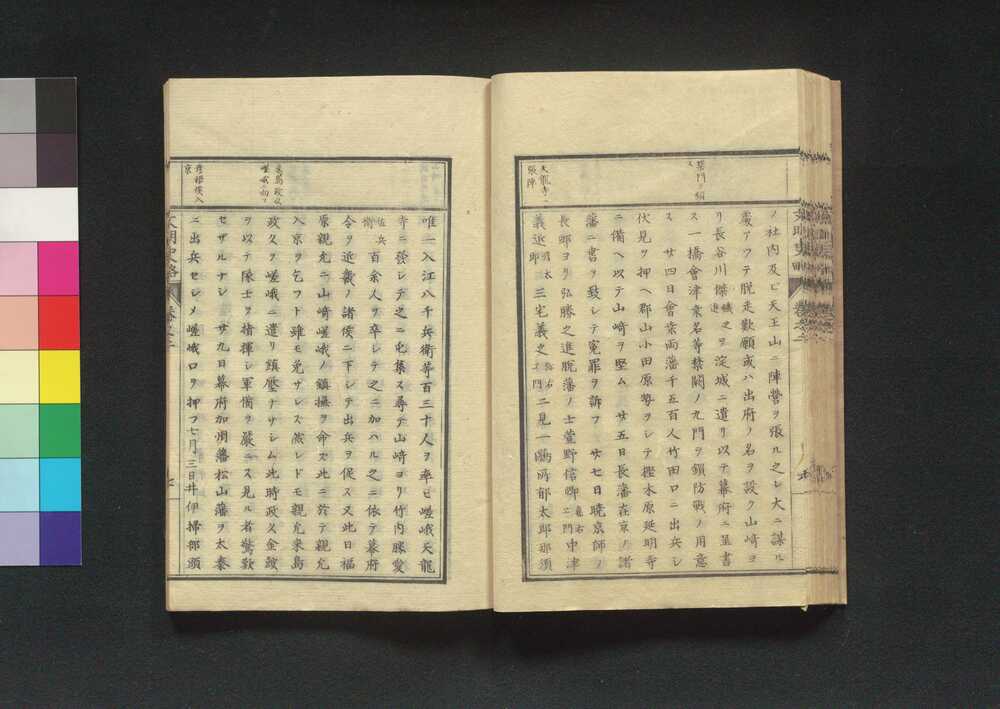 禁門ヲ鎖
ス
天龍寺ニ
張陣
ノ社内及ビ天王山ニ陣營ヲ張ル之レ大ニ謀ル
處アツテ脱走歎願或ハ出府ノ名ヲ設ク山﨑ヨ
リ長谷川傑磯之進ヲ淀城ニ遣リ以テ幕府ニ呈書
ス一橋會津桑名等禁闕ノ九門ヲ鎖防戰ノ用意
ス 廿四日會桑両藩千五百人竹田口ニ出兵シ
伏見ヲ押ヘ郡山小田原勢ヲシテ樫木原延明寺
ニ備ヘ以テ山﨑ヲ堅ム 廿五日長藩在京ノ諸
藩ニ書ヲ致シテ寃罪ヲ訴フ 廿七日暁京師ノ
長邸ヨリ弘勝之進脱藩ノ士萱野信卿 中津
義延 三宅義之 二見一鴎 郁太郎那須
唯一入江八千兵衛等百三十人ヲ率ヒ嵯峨天龍
寺ニ發シテ之ニ屯集ス尋テ山﨑ヨリ竹内勝愛
佐兵衛 百余人ヲ卒シテ之ニ加ハル之ニ依テ幕府
令ヲ近畿ノ諸侯ニ下シテ出兵ヲ促ス又此日福
原親允ニ山﨑嵯峨ノ鎮撫ヲ命ス此ニ於テ親允
入京ヲ乞フト雖モ免サレス然レドモ親允来島
政久ヲ嵯峨ニ遣リ鎮壓ナサシム此時政久金鼓
ヲ以テ隊士ヲ指揮シ軍備ヲ嚴ニス見ル者驚歎
セザルナシ 廿九日幕府加州藩松山藩ヲ太秦
ニ出兵セシメ嵯峨口ヲ押フ七月三日井伊掃部頭
来島政久
嵯峨ニ初ル
彦根侯入
京
文明史略 巻之二